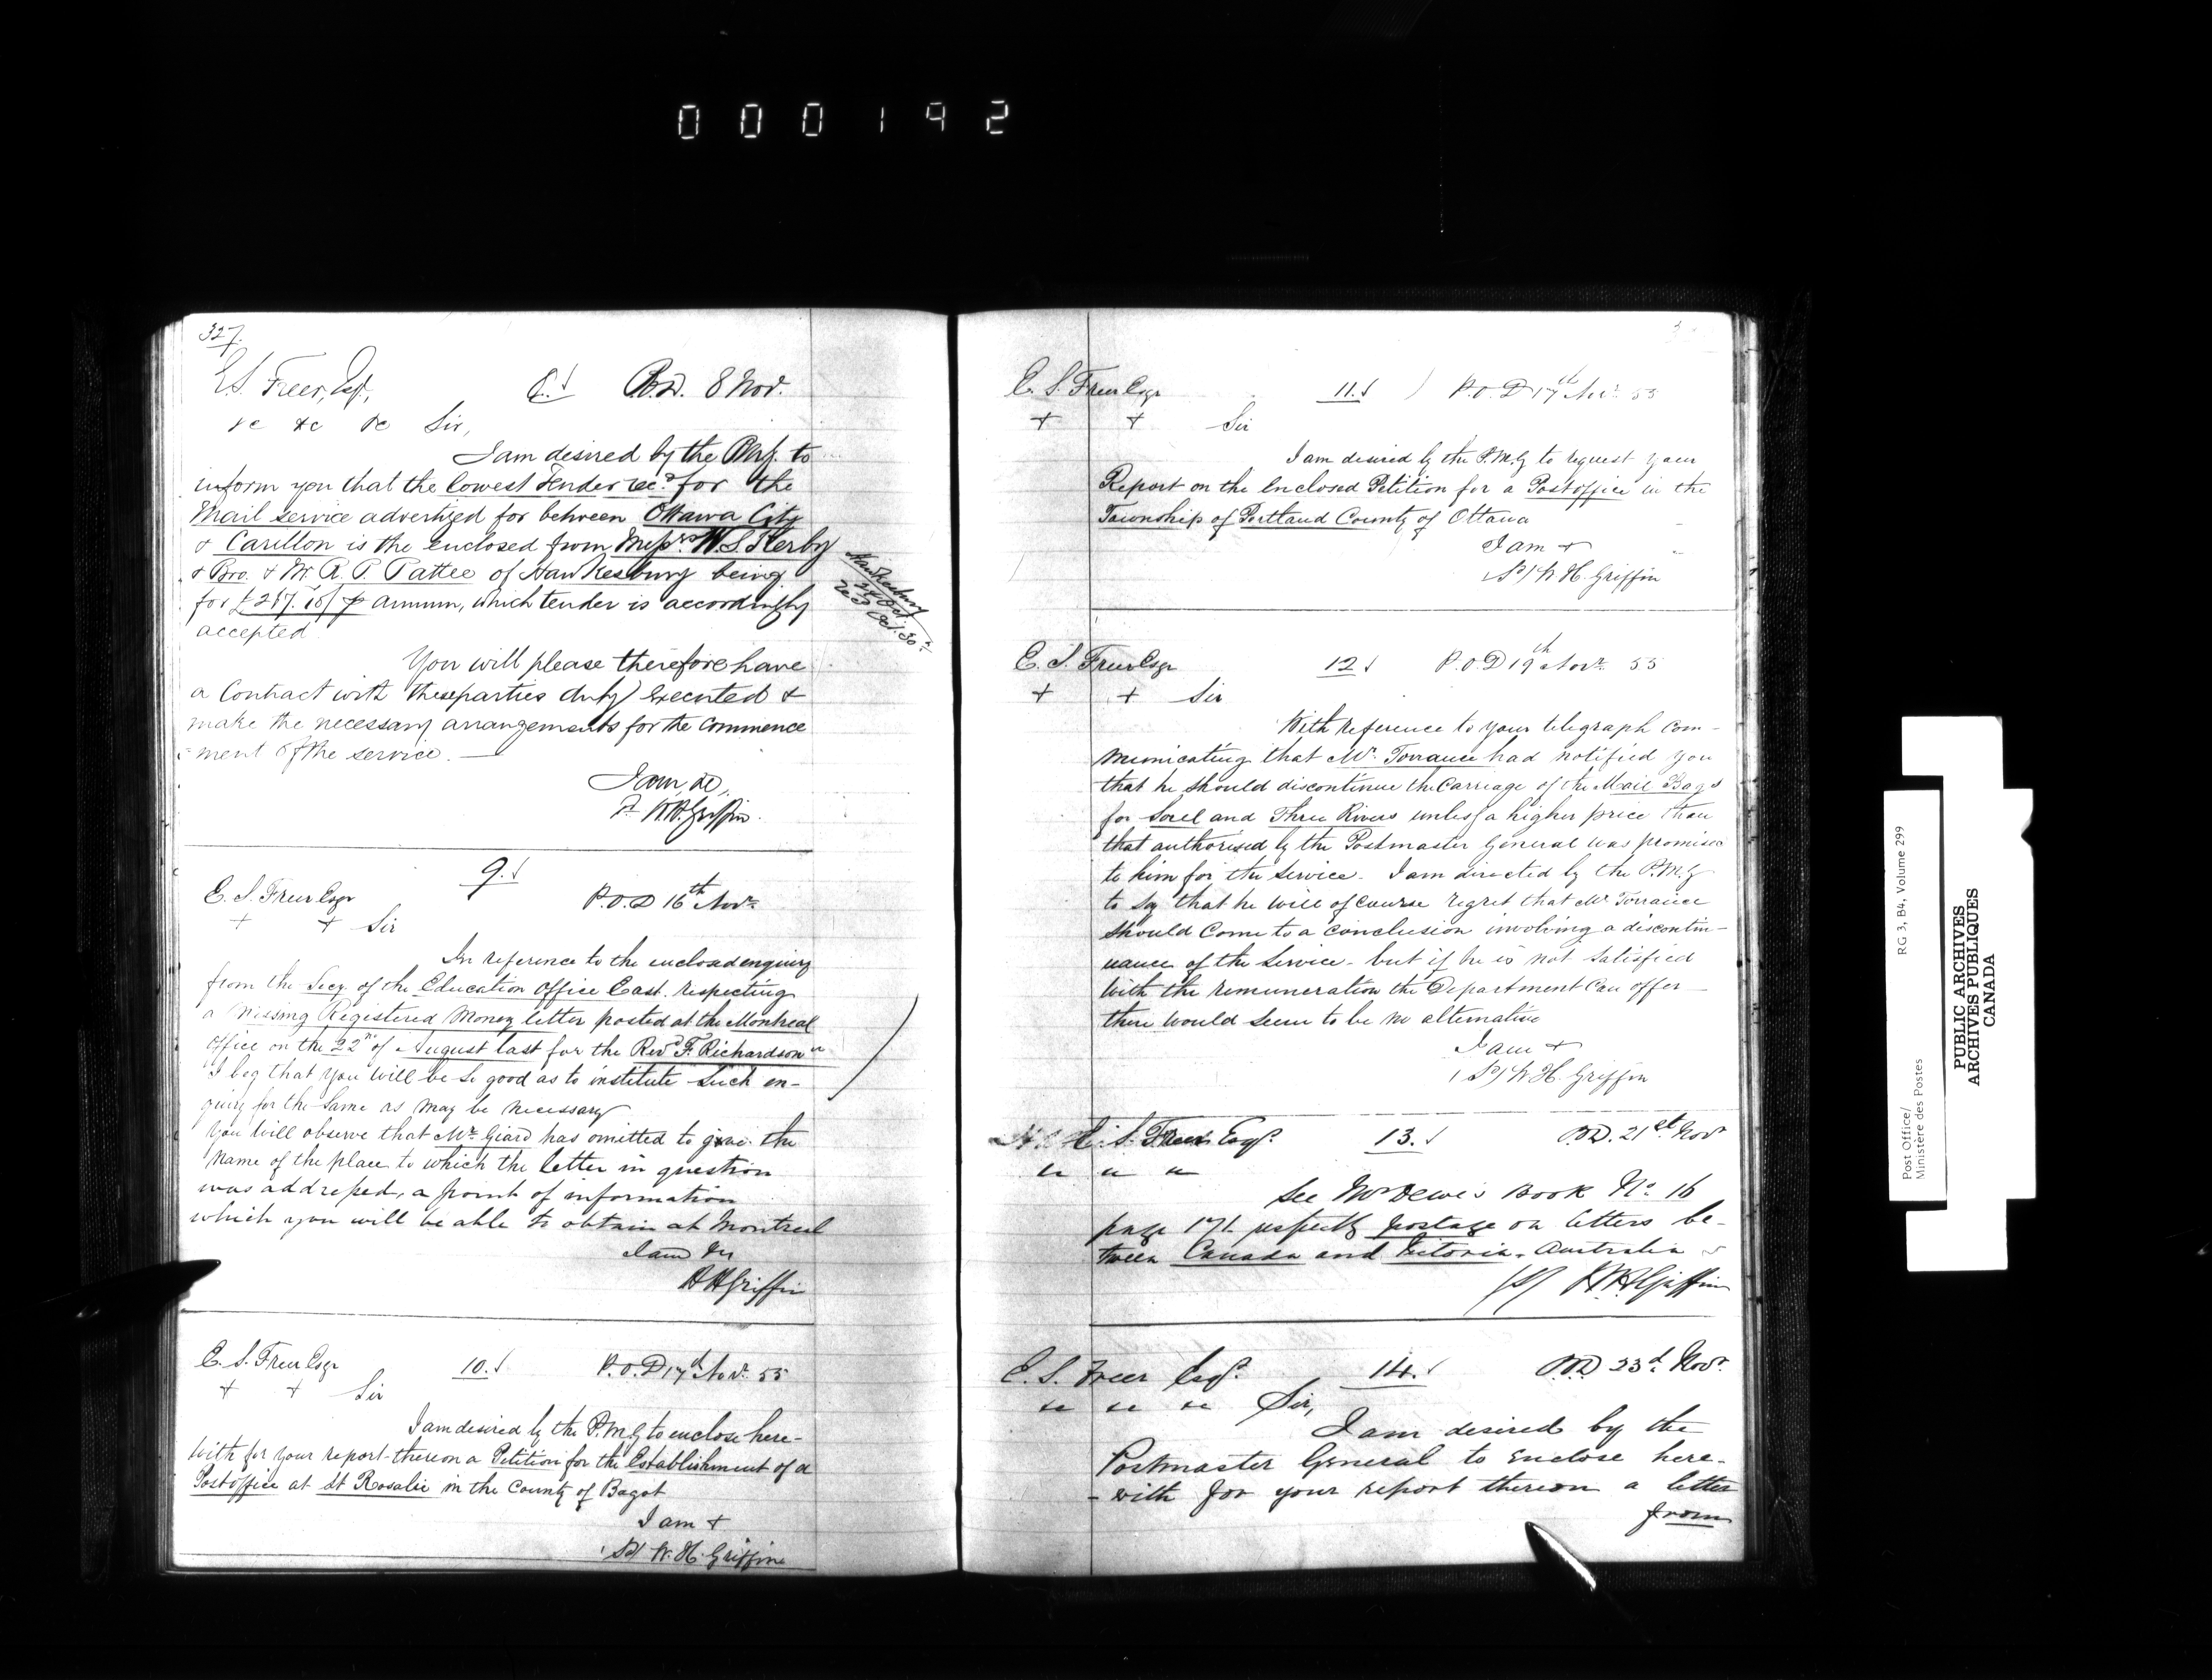 000192
327.
E.S. Freer, Esq., 8. P.O.D. 8 Nov.
&c &c &c Sir,
I am desired by the PMG. to
inform you that the lowest Tender recd for the
Mail service advertized for between Ottawa City
& Carillon is the enclosed from Messrs W. S. Kerby
& Bro. & Mr. R. P. Pattee of Hawkesbury being
for annum, which tender is accordingly
accepted
Hawkesbury
24 Oct.
Recd Oct. 30
You will please therefore have
a Contract with these parties duly executed &
make the necessary arrangements for the commence
-ment of the service. —
I am, &c,
W.H. Griffin.
9.
E. S. Freer Esqr P.O.D 16th Novr
+ + Sir
In reference to the enclosed enquiry
from the Secy. of the Education Office East. respecting
a Missing Registered Money letter posted at the Montreal
Office on the 22nd of August last for the Revd F. Richardson
I beg that you will be so good as to institute such en-
quiry for the same as may be necessary
You will observe that Mr. Giard has omitted to give the
name of the place to which the letter in question
was addressed, a point of information
which you will be able to obtain at Montreal
I am
W H Griffin
E. S. Freer Esqr 10. P.O.D 17th Novr. 55
+ + Sir
I am desired by the P.M.G to enclose here-
with for your report thereon a Petition for the Establishment of a
Postoffice at St Rosalie in the County of Bagot
I am +
W. H. Griffin
E. S. Freer Esqr 11. P.O.D 17th Novr 55
+ + Sir
I am desired by the P.M.G to request your
Report on the Enclosed Petition for a Postoffice in the
Township of Portland County of Ottawa
I am +
W. H. Griffin
E. S. Freer Esqr 12 P.O.D 19th Novr. 55
+ + Sir
With reference to your telegraph com-
municating that Mr. Torrance had notified you
that he should discontinue the Carriage of the Mail Bags
for Sorel and Three Rivers unless a higher price than
that authorised by the Postmaster General was promised
to him for the Service. I am directed by the P.M.G
to say that he will of course regret that Mr Torrance
should Come to a conclusion involving a discontin-
uance of the Service - but if he is not satisfied
with the remuneration the Department Can offer —
there would seem to be no alternative
I am +
W. H. Griffin
E. S. Freer Esqr. 13. P.O.D. 21st. Novr
" " "
See Mr Dewe's Book No. 16
page 171 respectg postage on letters be-
tween Canada and Victoria. Australia
W H Griffin
E. S. Freer Esqr. 14. P.O.D 23d. Novr.
" " " Sir,
I am desired by the
Postmaster General to Enclose here-
-with for your report thereon a letter
from
Post Office/
Ministère des Postes
RG 3, B4, Volume 299
PUBLIC ARCHIVES
ARCHIVES PUBLIQUES
CANADA